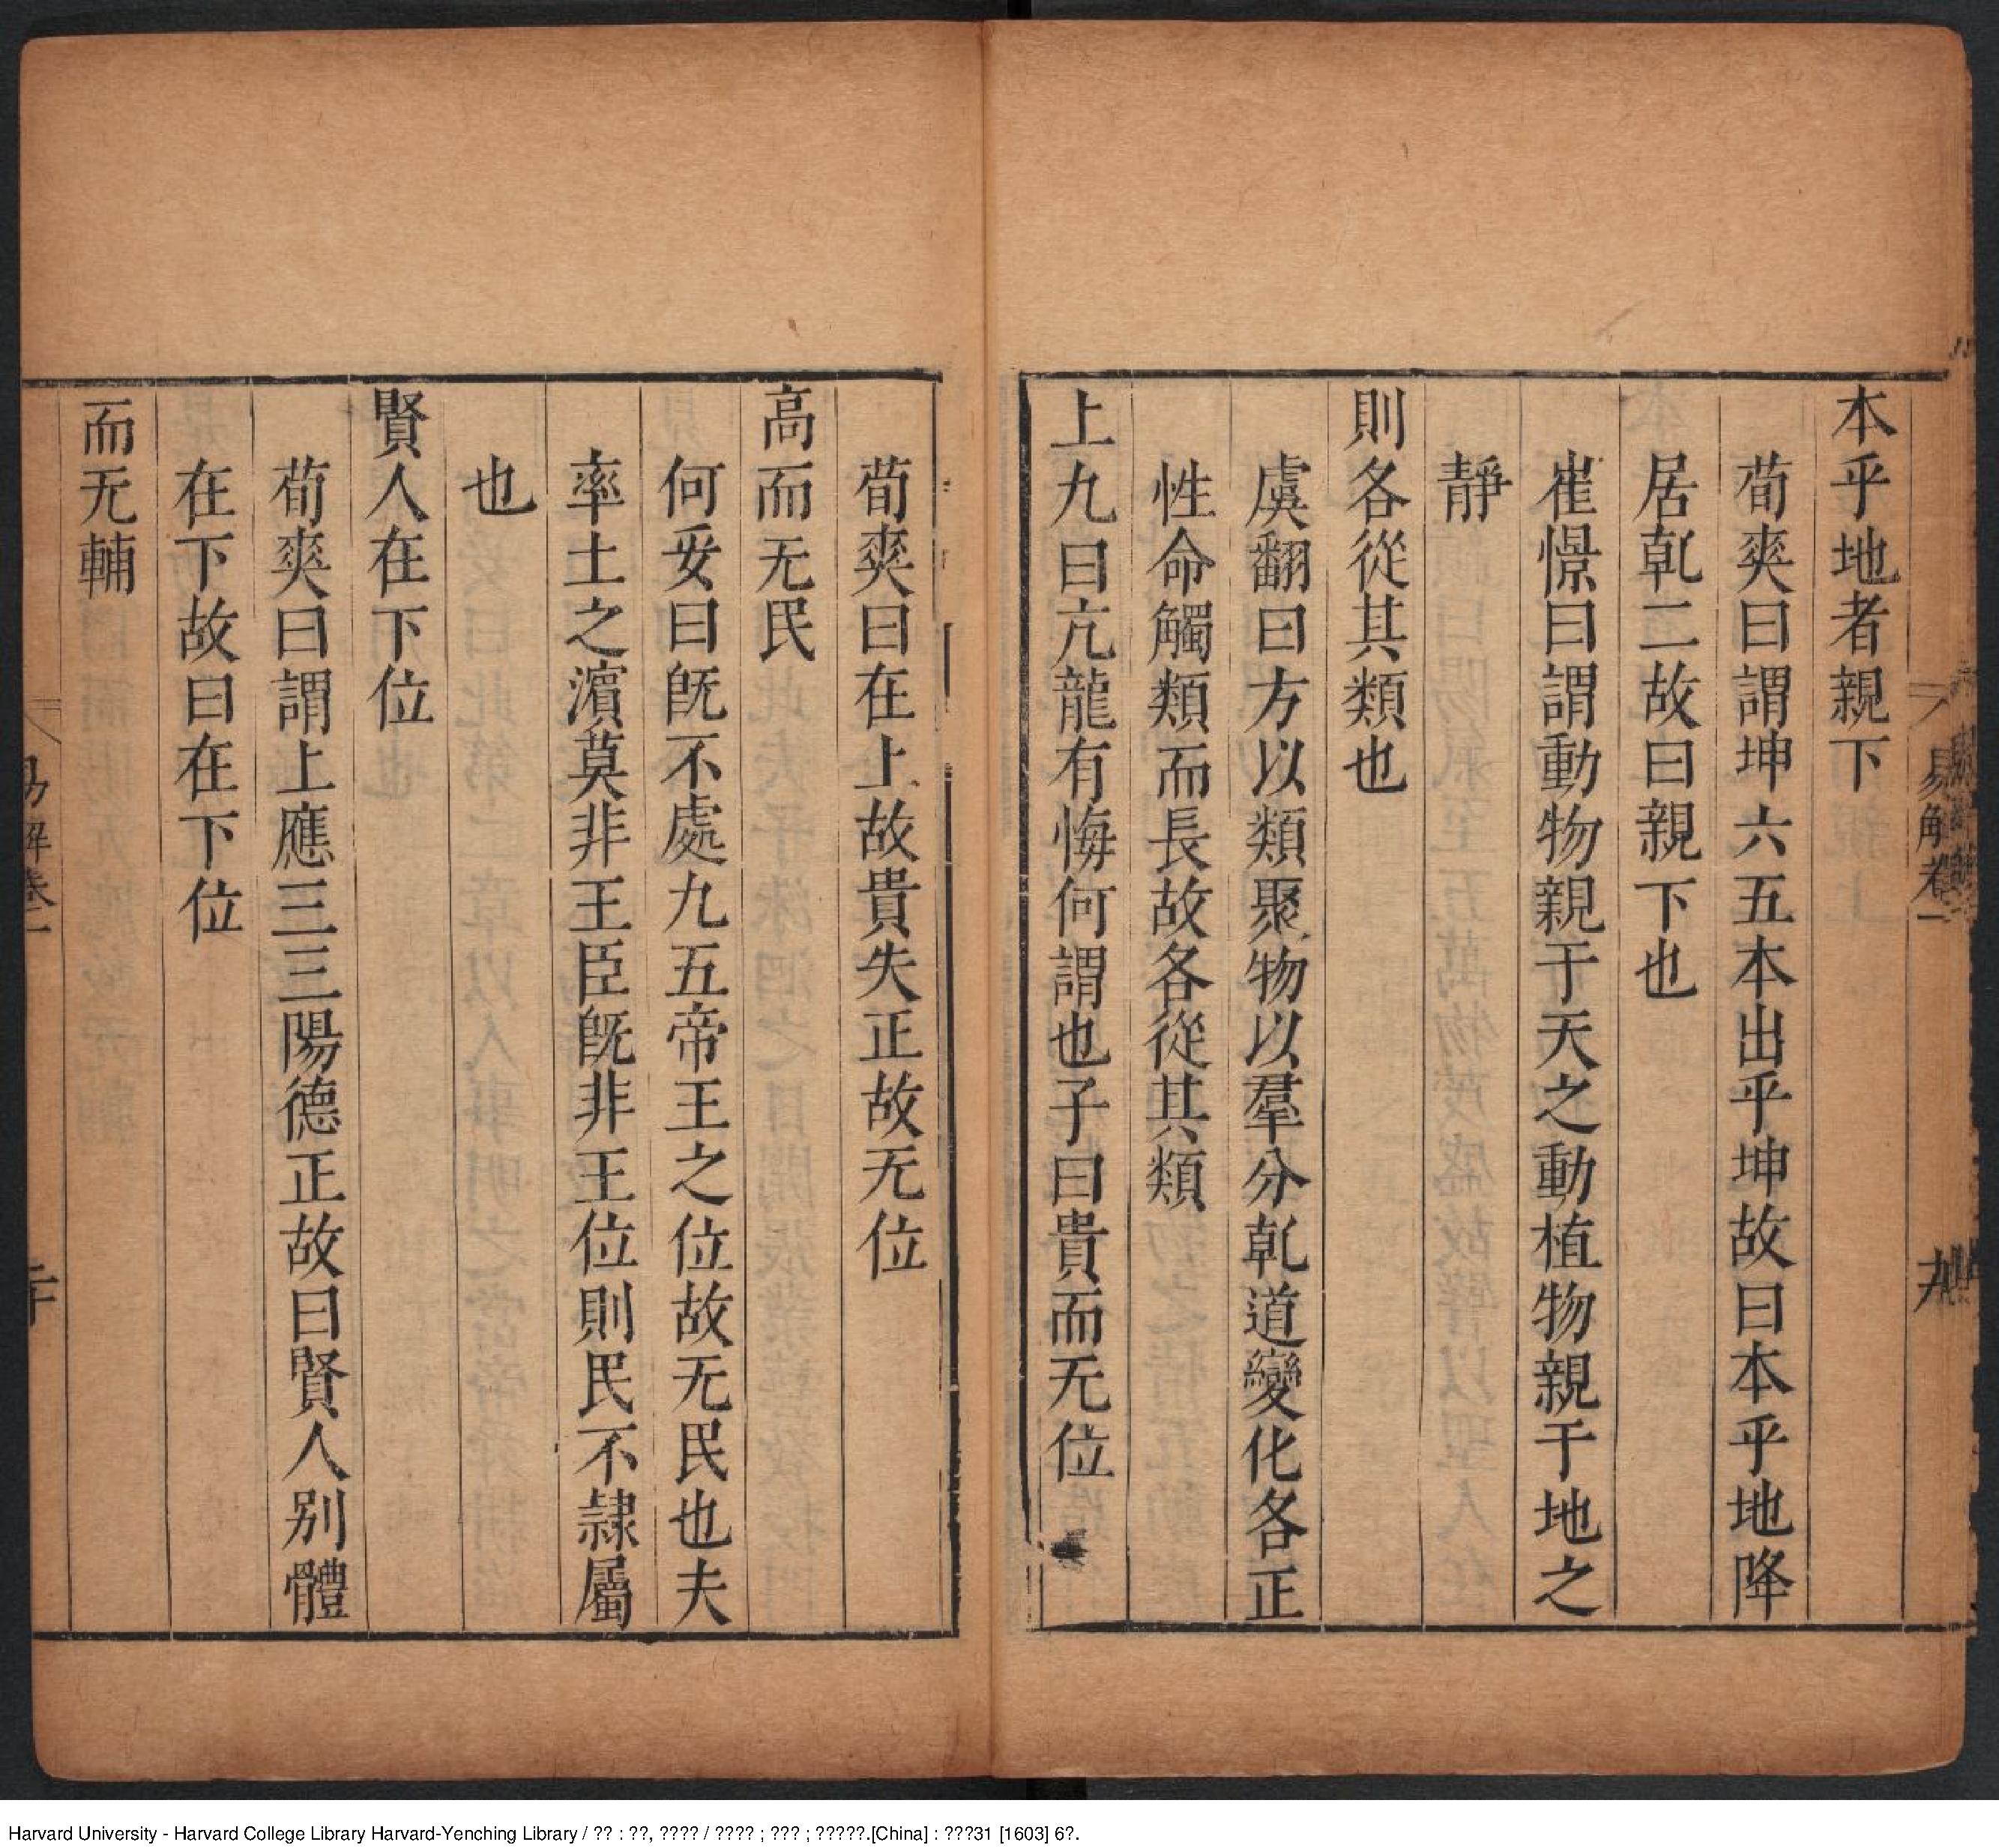 本乎地者親下
荀爽曰謂坤六五本出乎坤故曰本乎地降
居乹二故曰親下也
崔憬曰謂動物親于天之動植物親于地之
靜
則各從其類也
虞翻曰方以類聚物以羣分乹道變化各正
性命觸類而長故各從其類
上九曰亢龍有悔何謂也子曰貴而无位
荀爽曰在上故貴失正故无位
高而无民
何妥曰旣不處九五帝王之位故无民也夫
率土之濱莫非王臣旣非王位則民不隷屬
也
賢人在下位
荀爽曰謂上應三三陽德正故曰賢人别體
在下故曰在下位
而无輔
易解卷一
Harvard University - Harvard College Library Harvard-Yenching Library / ?? : ??, ???? / ???? ; ??? ; ?????.[China] : ???31 [1603] 6?.